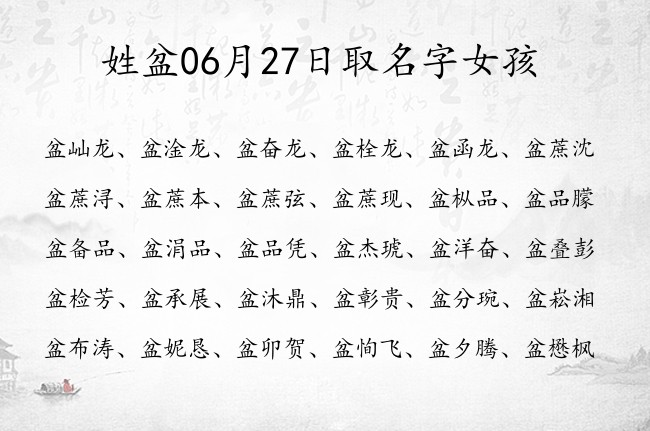 姓盆06月27日取名字女孩
盆屾龙、盆淦龙、盆奋龙、盆栓龙、盆函龙、盆蔗沈
盆蔗浔、盆蔗本、盆蔗弦、盆蔗现、盆枞品、盆品朦
盆备品、盆涓品、盆品凭、盆杰琥、盆洋奋、盆叠彭
盆检芳、盆承展、盆沐鼎、盆彰贵、盆分琬、盆崧湘
盆布涛、盆妮恳、盆卯贺、盆恦飞、盆夕腾、盆懋枫